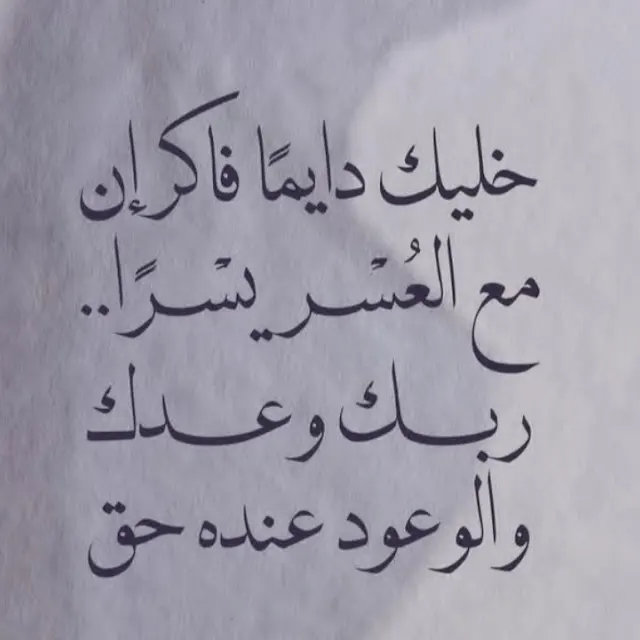 خليك دايمًا فاكر إن
مع العُسْر يسْرًا..
ربك وعدك
والوعود عنده حق